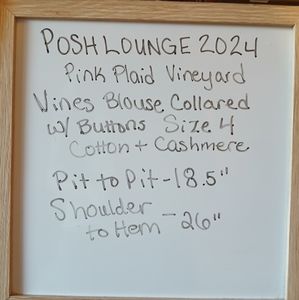 POSH LOUNGE 2024
Pink Plaid Vineyard
Vines Blouse Collared
w/ Buttons Size 4
Cotton + Cashmere
Pit to Pit - 18.5"
Shoulder
to Hem - 26"